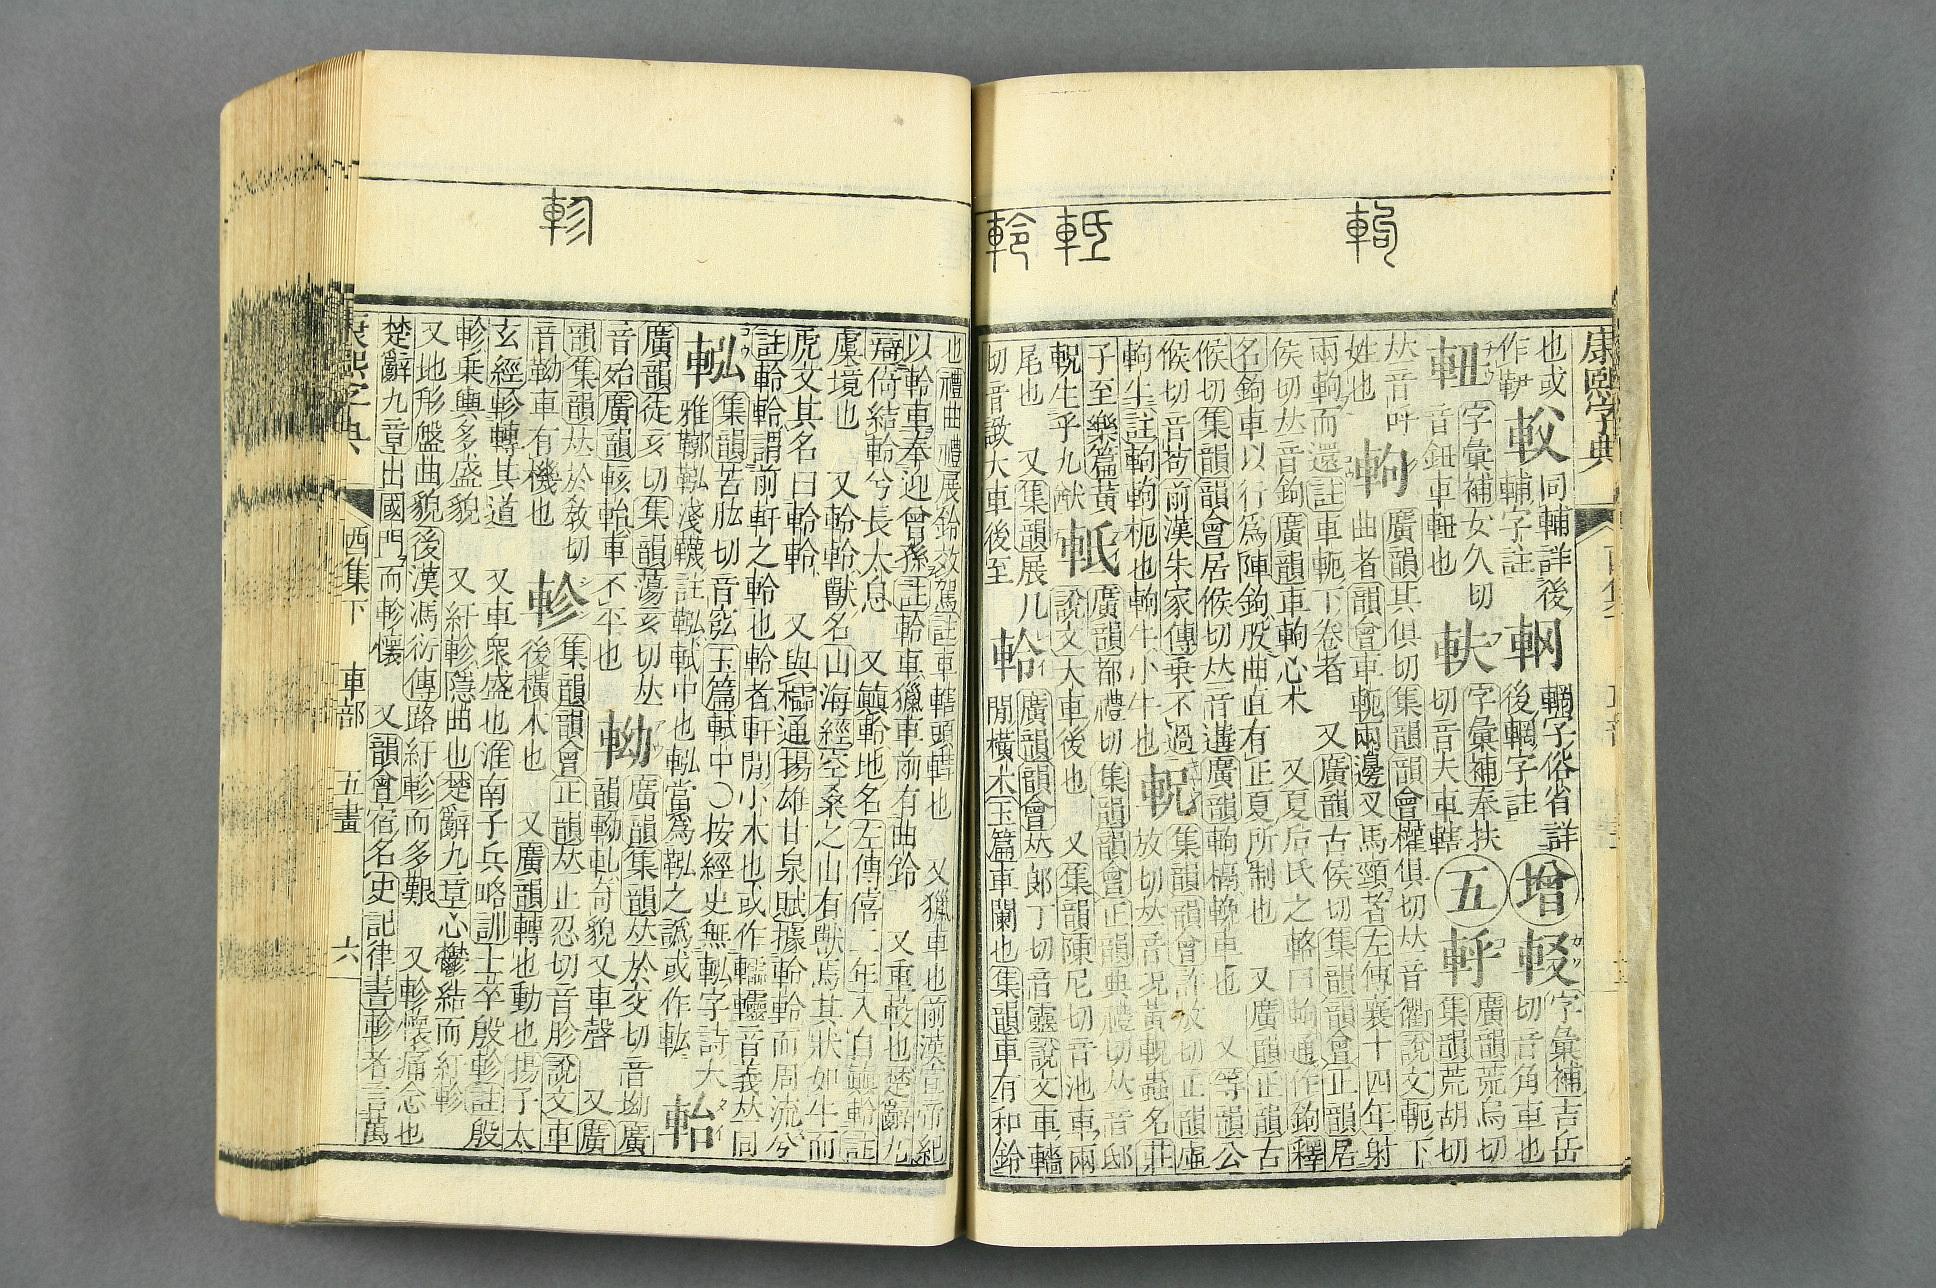 康熙字典
也或
作𨋎
輔字註
同輔詳後
輞字俗省詳
後輞字註
增
字彙補吉岳
切音角車也
字彙補女久切
音鈕車軔也
軑
字彙補奉扶
切音夫車轄
五
軤
廣韻荒烏切
集韻荒胡切
𠀤音呼
姓也
軥
廣韻其俱切集韻韻會權俱切𠀤音衢說文軛下
曲者韻會車軛兩邊叉馬頸者左傳襄十四年射
兩軥而還註車軛下卷者 又廣韻古侯切集韻韻會正韻居
侯切𠀤音鉤廣韻車軥心木 又夏后氏之輅曰軥通作鉤釋
名鉤車以行爲陣鉤股曲直有正夏所制也 又廣韻正韻古
候切集韻韻會居候切𠀤音遘廣韻軥𨍇輓車也 又等韻公
候切音苟前漢朱家傳乘不過
軥牛註軥軥枙也軥牛小牛也
軦
集韻韻會許放切正韻虛
放切𠀤音况黃軦蟲名莊
子至樂篇黃
軦生乎九猷
軧
廣韻都禮切集韻韻會正韻典禮切𠀤音邸
說文大車後也 又集韻陳尼切音池車兩
尾也 又集韻展几
切音諏大車後至
軨
廣韻韻會𠀤郎丁切音靈說文車轖
閒橫木玉篇車闌也集韻車有和鈴
也禮曲禮展軨效駕註車轄頭轊也 又獵車也前漢宣帝紀
以軨車奉迎曾孫註軨車獵車前有曲軨 又重較也楚辭九
辯倚結軨兮長太息 又顚軨地名左傳僖二年入自顚軨註
虞境也 又軨軨獸名山海經空桑之山有獸焉其狀如牛而
虎文其名曰軨軨 又與櫺通揚雄甘泉賦據軨軒而周流兮
註軨軨謂前軒之軨也軨者軒閒小木也或作轜轠音義𠀤同
𨋎
集韻苦肱切音弦玉篇軾中○按經史無𨋎字詩大
雅鞹鞃淺幭註鞃軾中也𨋎當爲鞃之譌或作軚
軩
廣韻徒亥切集韻蕩亥切𠀤
音殆廣韻輆軩車不平也
䡊
廣韻集韻𠀤於交切音坳廣
韻䡊軋奇貌又車聲 又廣
韻集韻𠀤於敎切
音靿車有機也
軫
集韻韻會正韻𠀤止忍切音胗說文車
後橫木也 又廣韻轉也動也揚子太
玄經軫轉其道 又車衆盛也淮南子兵略訓士卒殷軫註殷
軫乗輿多盛貌 又紆軫隱曲也楚辭九章心鬱結而紆軫
又地形盤曲貌後漢馮衍傳路紆軫而多艱 又軫懷痛念也
楚辭九章出國門而軫懷 又韻會宿名史記律書軫者言萬
康熙字典
酉集下
車部
五畫
六